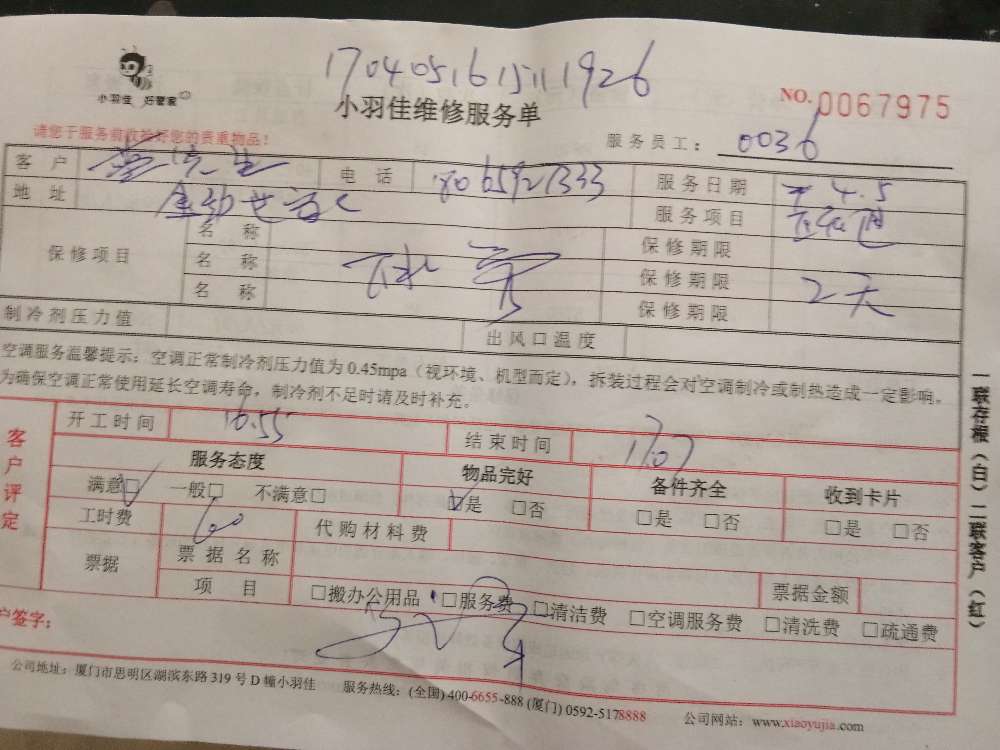 17040516151119 26
小羽佳 好管家
小羽佳维修服务单
NO.0067975
请您于服务前收拾好您的贵重物品！
服务员工： 0036
客户 先生 电话 服务日期 4.5
地址 服务项目
保修项目 名称 保修期限
名称 保修期限 2天
名称 保修期限
制冷剂压力值 出风口温度
空调服务温馨提示：空调正常制冷剂压力值为0.45mpa（视环境、机型而定），拆装过程会对空调制冷或制热造成一定影响。
为确保空调正常使用延长空调寿命，制冷剂不足时请及时补充。
客户评定
开工时间 16.55 结束时间 17.07
服务态度 物品完好 备件齐全 收到卡片
满意☑ 一般□ 不满意□ ☑是 □否 □是 □否 □是 □否
工时费 代购材料费
票据 票据名称
项目 □搬办公用品 □服务费 □清洁费 □空调服务费 □清洗费 □疏通费
票据金额
户签字：
公司地址：厦门市思明区湖滨东路319号D幢小羽佳 服务热线：(全国) 400-6655-888 (厦门) 0592-5178888 公司网站：www.xiaoyujia.com
一联存根（白）二联客户（红）